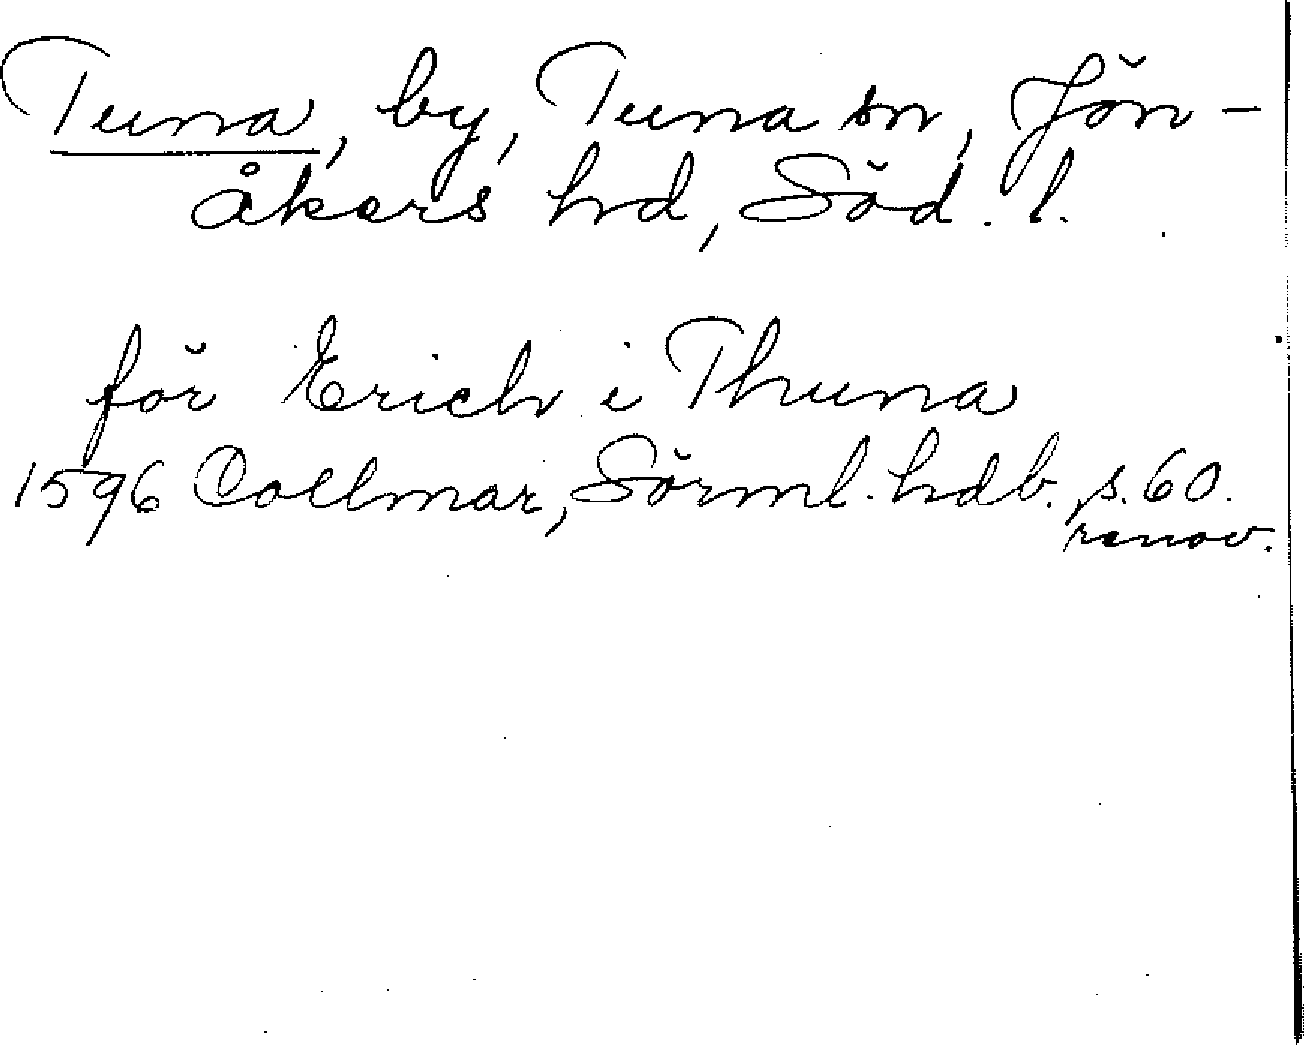 Tuna, by, Tuna sn, Jön-
åkers hd, Söd. l.
för Erich i Thuna
1596 Collmar, Sörml. hdb. s. 60.
renov.